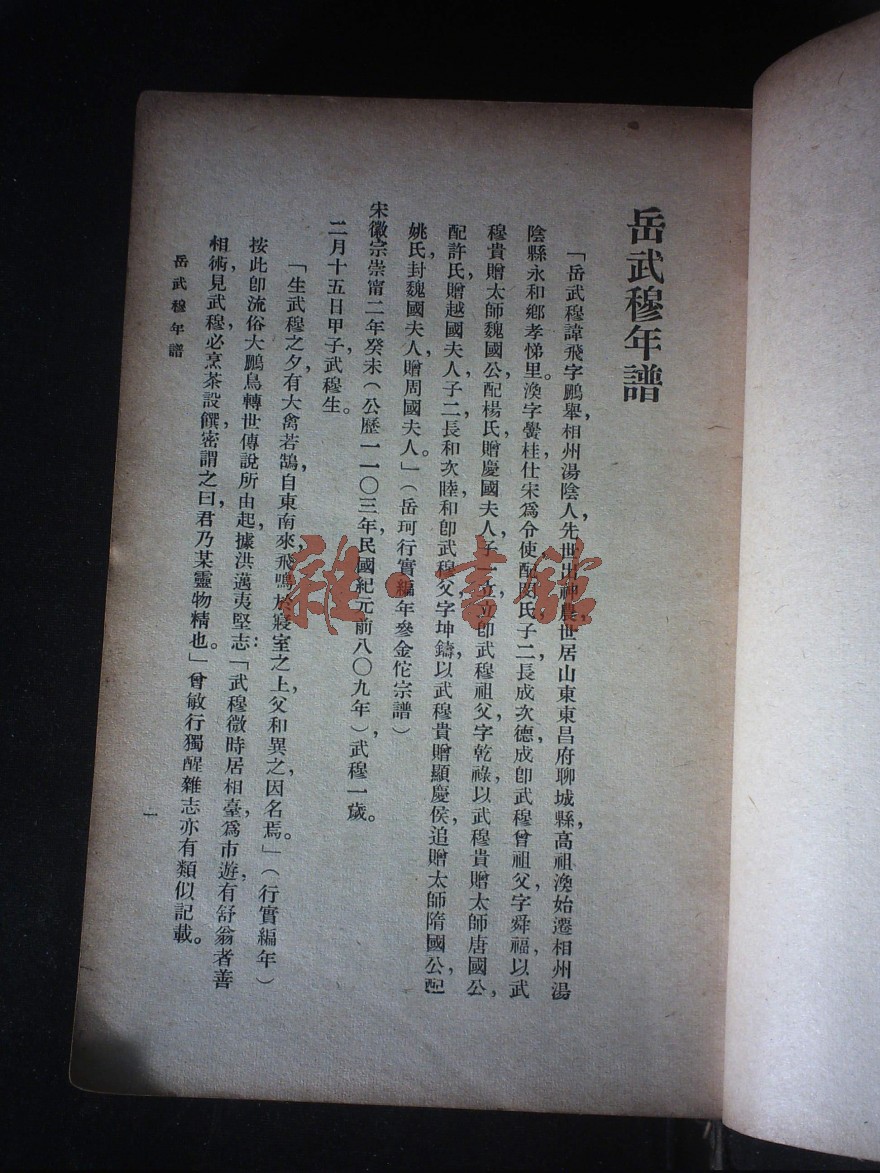 岳武穆年譜
「岳武穆諱飛，字鵬舉，相州湯陰人，先世出神農，世居山東東昌府聊城縣，高祖渙始遷相州湯
陰縣永和鄉孝悌里。渙字黌桂，仕宋爲令使，配氏，子二，長成次德，成卽武穆曾祖父，字舜福，以武
穆貴贈太師魏國公，配楊氏，贈慶國夫人，子一立，立卽武穆祖父，字乾祿，以武穆貴贈太師唐國公，
配許氏，贈越國夫人，子二，長和次睦，和卽武穆父，字坤鑄，以武穆貴贈顯慶侯，追贈太師隋國公，配
姚氏，封魏國夫人，贈周國夫人。」（岳珂行實編年參金佗宗譜）
宋徽宗崇甯二年癸未（公歷一一〇三年，民國紀元前八〇九年），武穆一歲。
二月十五日甲子，武穆生。
「生武穆之夕，有大禽若鵠，自東南來，飛鳴於寢室之上，父和異之，因名焉。」（行實編年）
按此卽流俗大鵬鳥轉世傳說所由起，據洪邁夷堅志：「武穆微時居相臺，爲市遊，有舒翁者善
相術，見武穆，必烹茶設饌，密謂之曰，君乃某靈物精也。」曾敏行獨醒雜志亦有類似記載。
岳武穆年譜
一
雜·書館